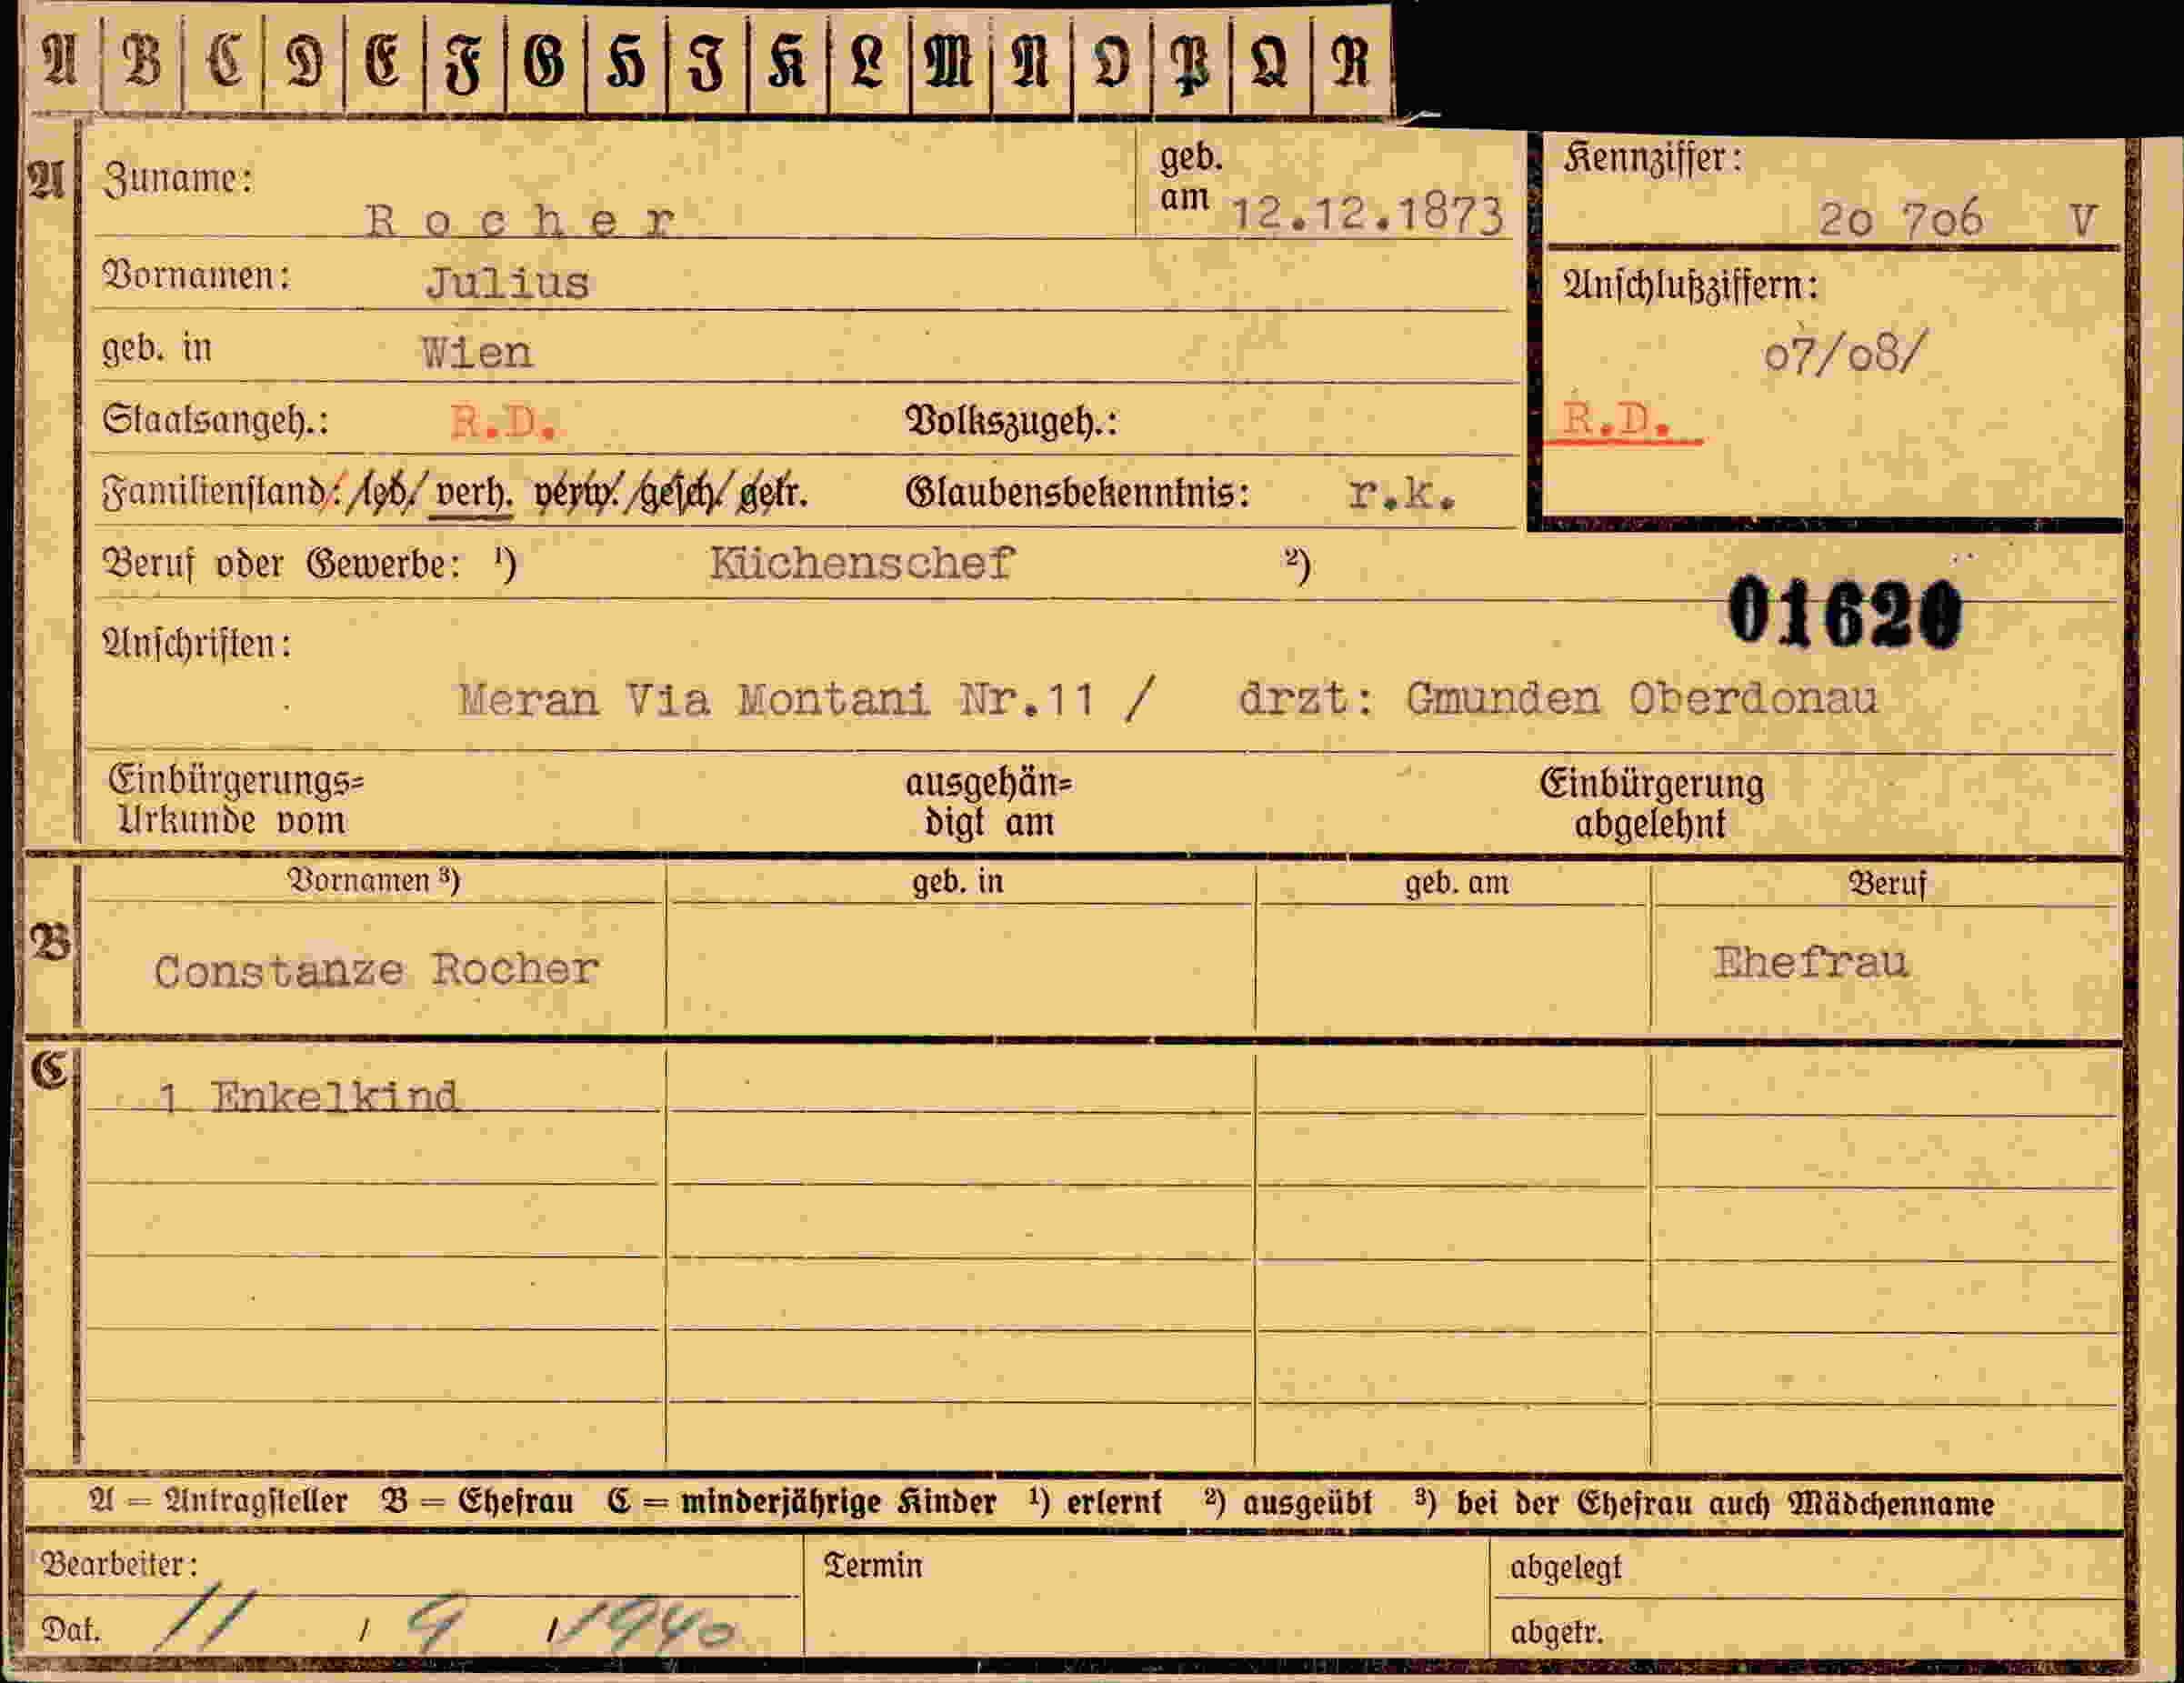 A B C D E F G H I K L M N O P Q R
A
Zuname: Rocher
geb. am 12.12.1873
Kennziffer: 20 706 V
Vornamen: Julius
Anschlußziffern: 07/08/
geb. in Wien
Staatsangeh.: R.D. Volkszugeh.:
R.D.
Familienstand: led. verh. verw. gesch. getr. Glaubensbekenntnis: r.k.
Beruf oder Gewerbe: 1) Küchenschef 2)
01620
Anschriften:
Meran Via Montani Nr.11 / drzt: Gmunden Oberdonau
Einbürgerungs= ausgehän= Einbürgerung
Urkunde vom digt am abgelehnt
Vornamen 3) geb. in geb. am Beruf
B
Constanze Rocher Ehefrau
C
1 Enkelkind
A = Antragsteller B = Ehefrau C = minderjährige Kinder 1) erlernt 2) ausgeübt 3) bei der Ehefrau auch Mädchenname
Bearbeiter: Termin abgelegt
Dat. 11 / 9 / 1940 abgetr.